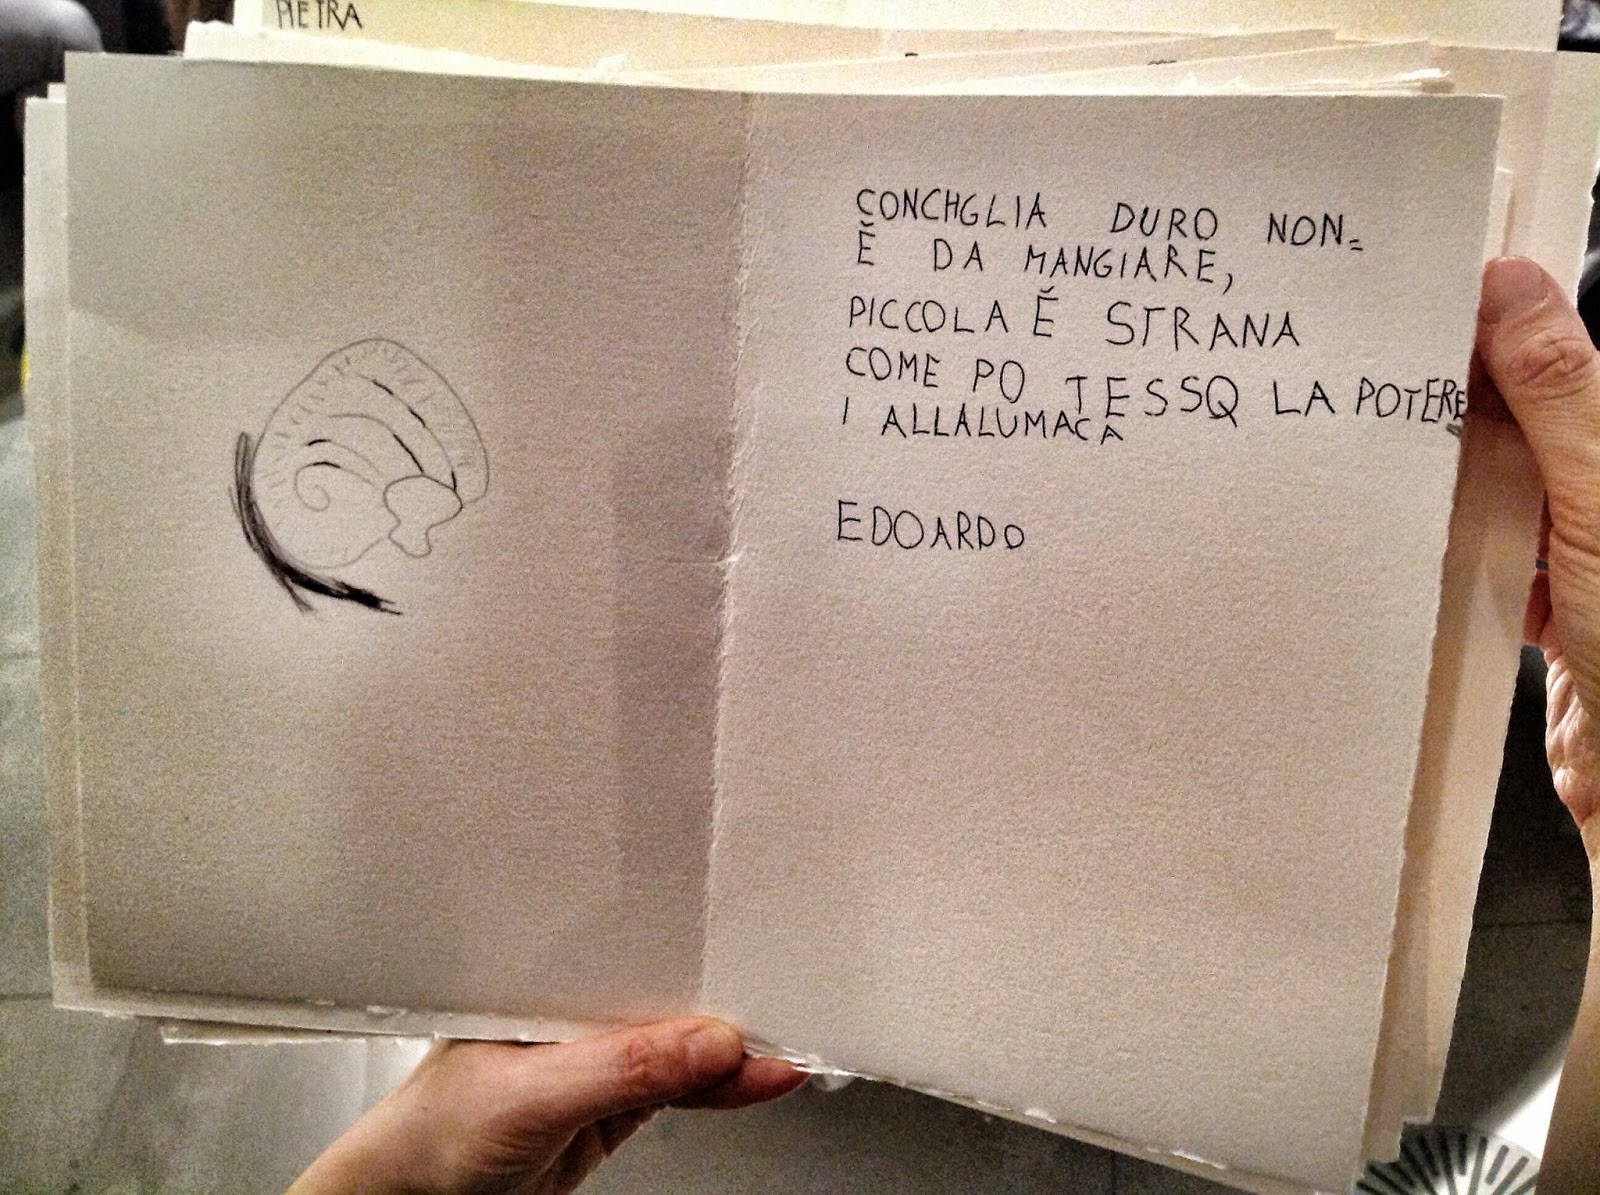 PIETRA
CONCHGLIA DURO NON=
Ĕ DA MANGIARE,
PICCOLA Ĕ STRANA
COME PO TESSQ LA POTERE
I ALLALUMACA
EDOARDO